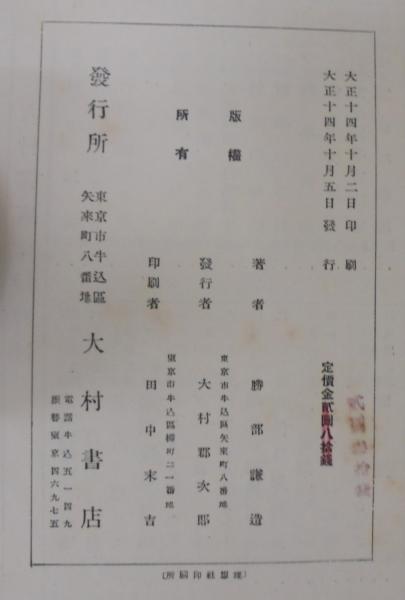 大正十四年十月二日印刷
大正十四年十月五日發行
定價金貳圓八拾錢
版權
所有
著者 勝部謙造
東京市牛込區矢來町八番地
發行者 大村郡次郎
東京市牛込區榎町二一番地
印刷者 田中末吉
發行所
東京市牛込區
矢來町八番地
大村書店
電話牛込五一四九
振替東京四六九七五